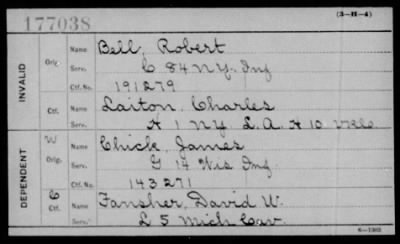 177038 (3-H-4)
INVALID
Orig. Name Bell, Robert
Serv. C 84 N.Y. Inf
Ctf. No. 191279
Ctf. Name Laiton, Charles
Serv. A 1 NY L.A. A 10
DEPENDENT
W Orig. Name Chick, James
Serv. G 14 Wis Inf.
Ctf. No. 143271
C Ctf. Name Fansher, David W.
Serv. L 5 Mich Cav.